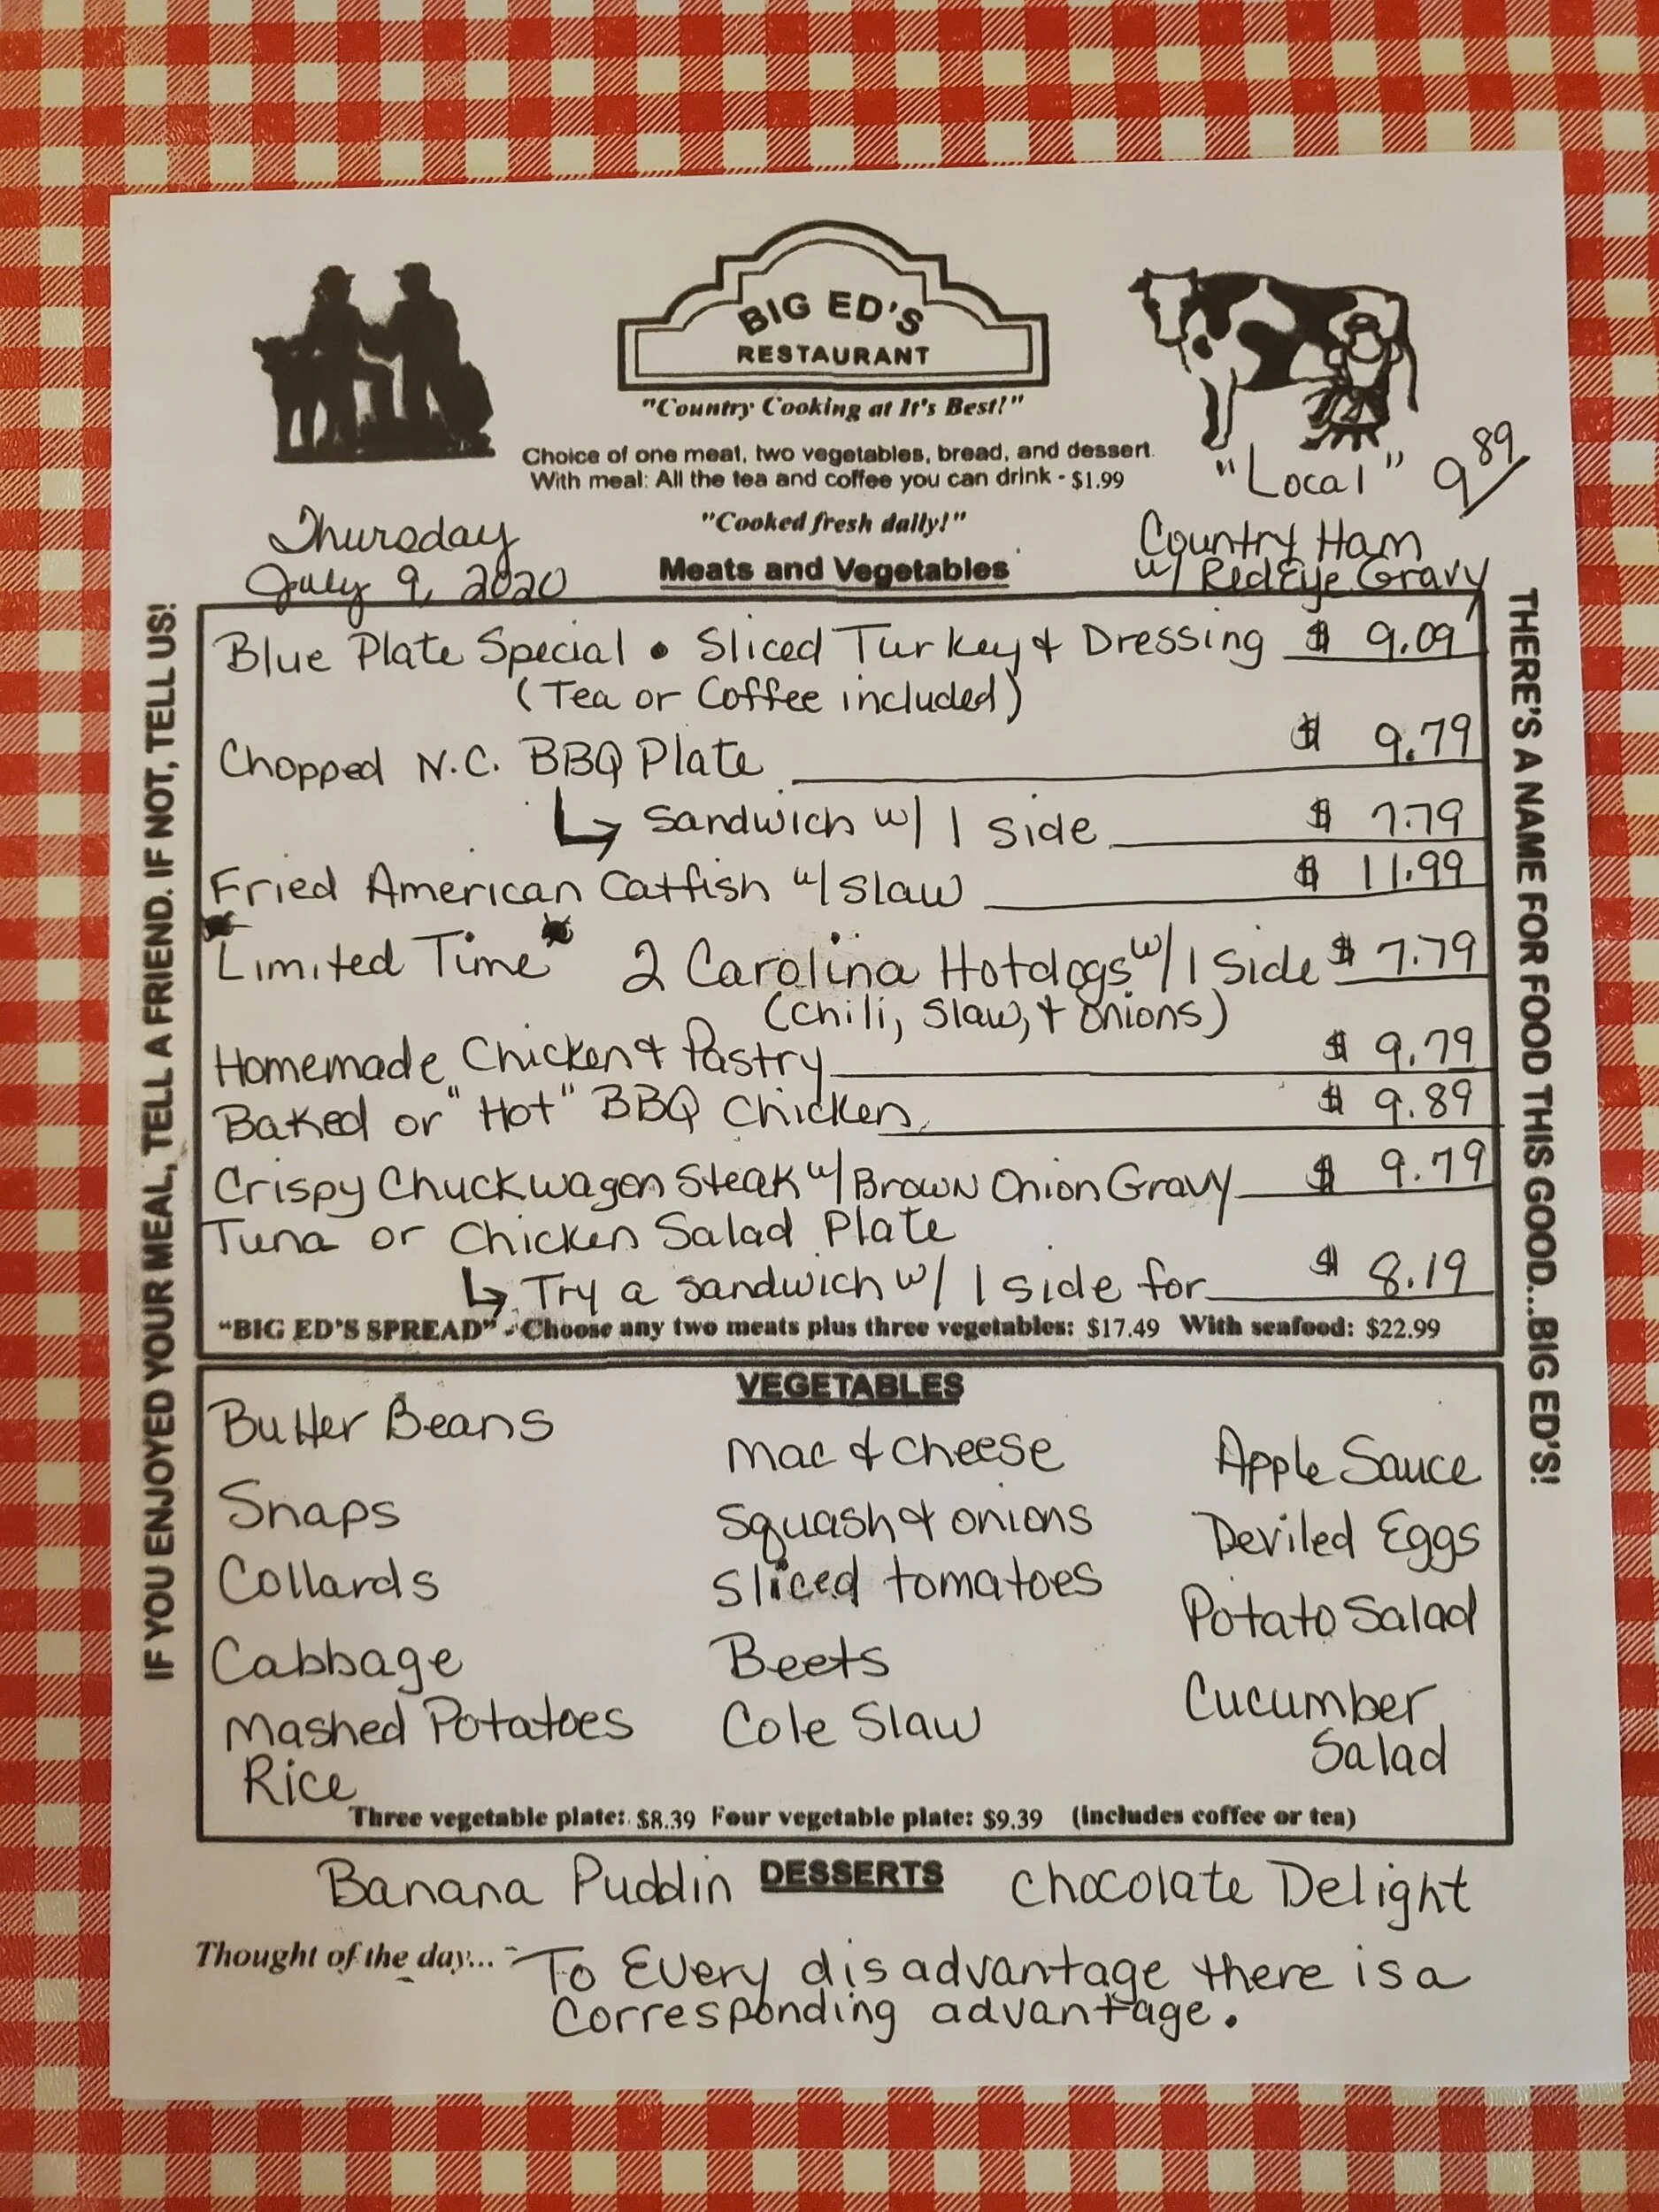 BIG ED'S
RESTAURANT
"Country Cooking at It's Best!"
Choice of one meat, two vegetables, bread, and dessert.
With meal: All the tea and coffee you can drink - $1.99
"Local" 9 89/
"Cooked fresh daily!"
Thursday
July 9, 2020
Meats and Vegetables
Country Ham
w/ RedEye Gravy
IF YOU ENJOYED YOUR MEAL, TELL A FRIEND. IF NOT, TELL US!
Blue Plate Special • Sliced Turkey & Dressing $ 9.09
(Tea or Coffee included)
Chopped N.C. BBQ Plate $ 9.79
↳ Sandwich w/ 1 side $ 7.79
Fried American Catfish w/ Slaw $ 11.99
*Limited Time* 2 Carolina Hotdogs w/ 1 Side $ 7.79
(Chili, Slaw, & Onions)
Homemade Chicken & Pastry $ 9.79
Baked or "Hot" BBQ Chicken $ 9.89
Crispy Chuckwagon Steak w/ Brown Onion Gravy $ 9.79
Tuna or Chicken Salad Plate
↳ Try a sandwich w/ 1 side for $ 8.19
"BIG ED'S SPREAD" - Choose any two meats plus three vegetables: $17.49 With seafood: $22.99
THERE'S A NAME FOR FOOD THIS GOOD...BIG ED'S!
VEGETABLES
Butter Beans
Snaps
Collards
Cabbage
Mashed Potatoes
Rice
Mac & Cheese
Squash & onions
Sliced tomatoes
Beets
Cole Slaw
Apple Sauce
Deviled Eggs
Potato Salad
Cucumber
Salad
Three vegetable plate: $8.39 Four vegetable plate: $9.39 (includes coffee or tea)
Banana Puddin DESSERTS Chocolate Delight
Thought of the day... - To Every disadvantage there is a
corresponding advantage.